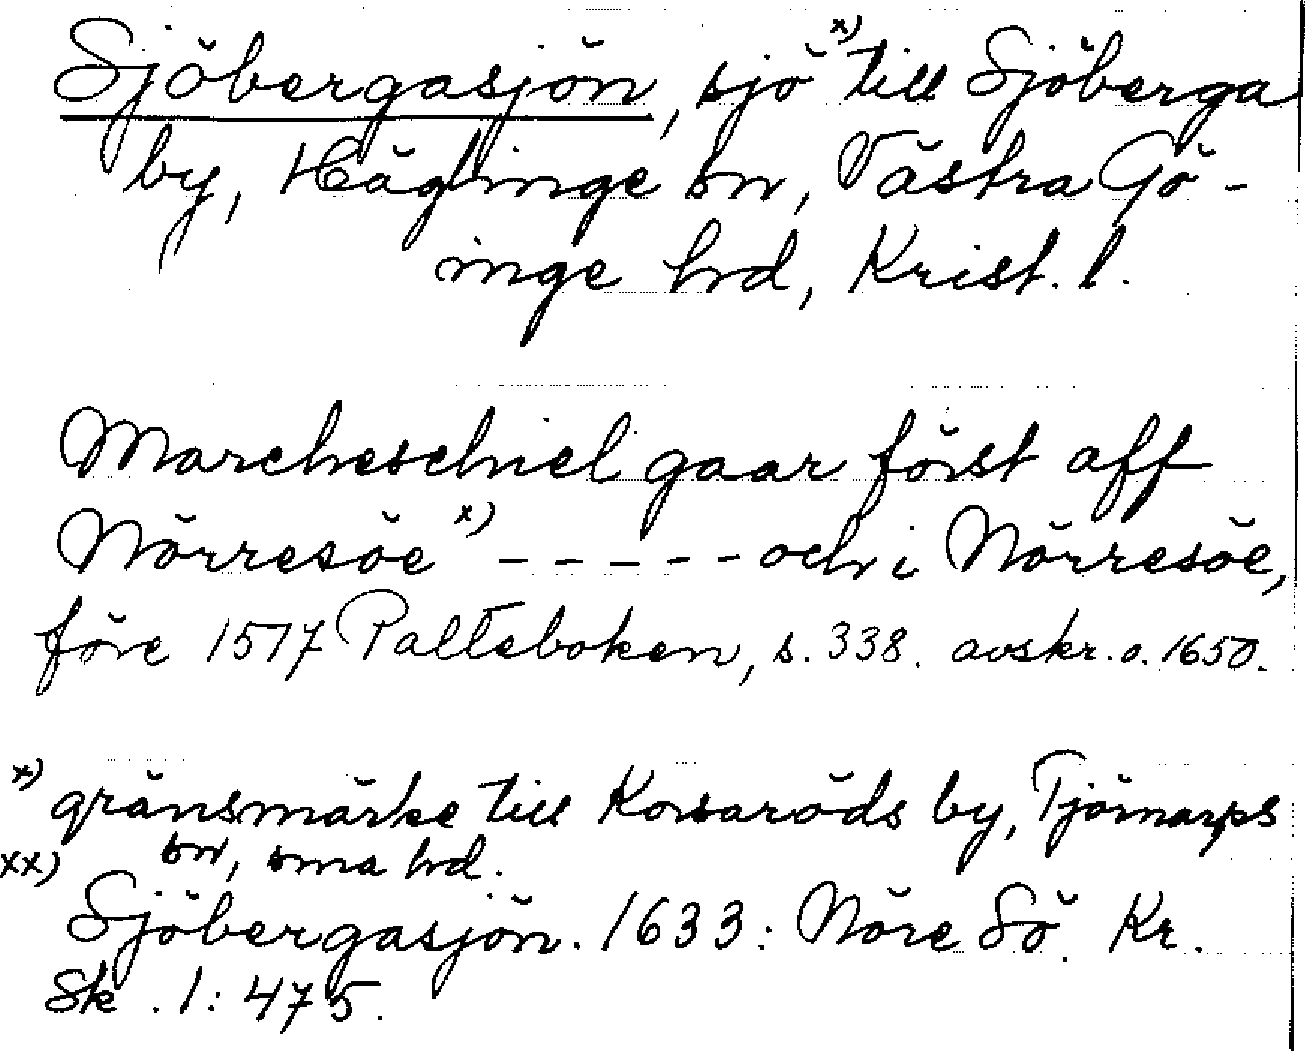 Sjöbergasjön, sjö x) till Sjöberga
by, Häglinge sn, Västra Gö-
inge hrd, Krist. l.
Marcheschiel gaar först aff
Nörresöe x) - - - - - och i Nörresöe,
före 1517 Palteboken, s. 338. avskr. o. 1650.
x) gränsmärke till Korsaröds by, Tjörnarps
sn, sma hrd.
xx)
Sjöbergasjön. 1633: Nöre Sö. Kr.
Sk. 1: 475.